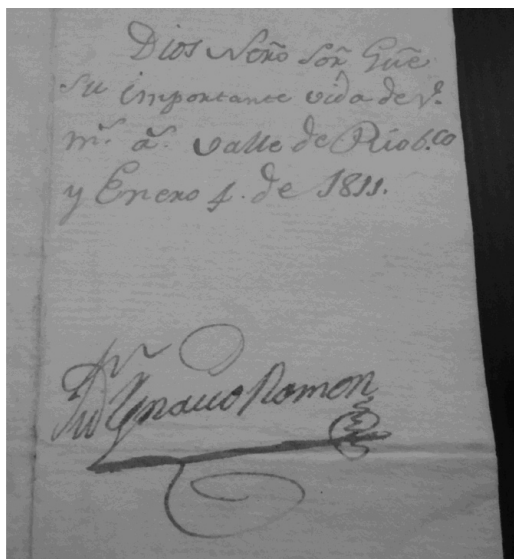 Dios Nrõ Sor̃ Gũe
su importante vida de V.
ms. as. Valle de Rio b.co
y Enero 4. de 1811.
Ygnacio Ramon